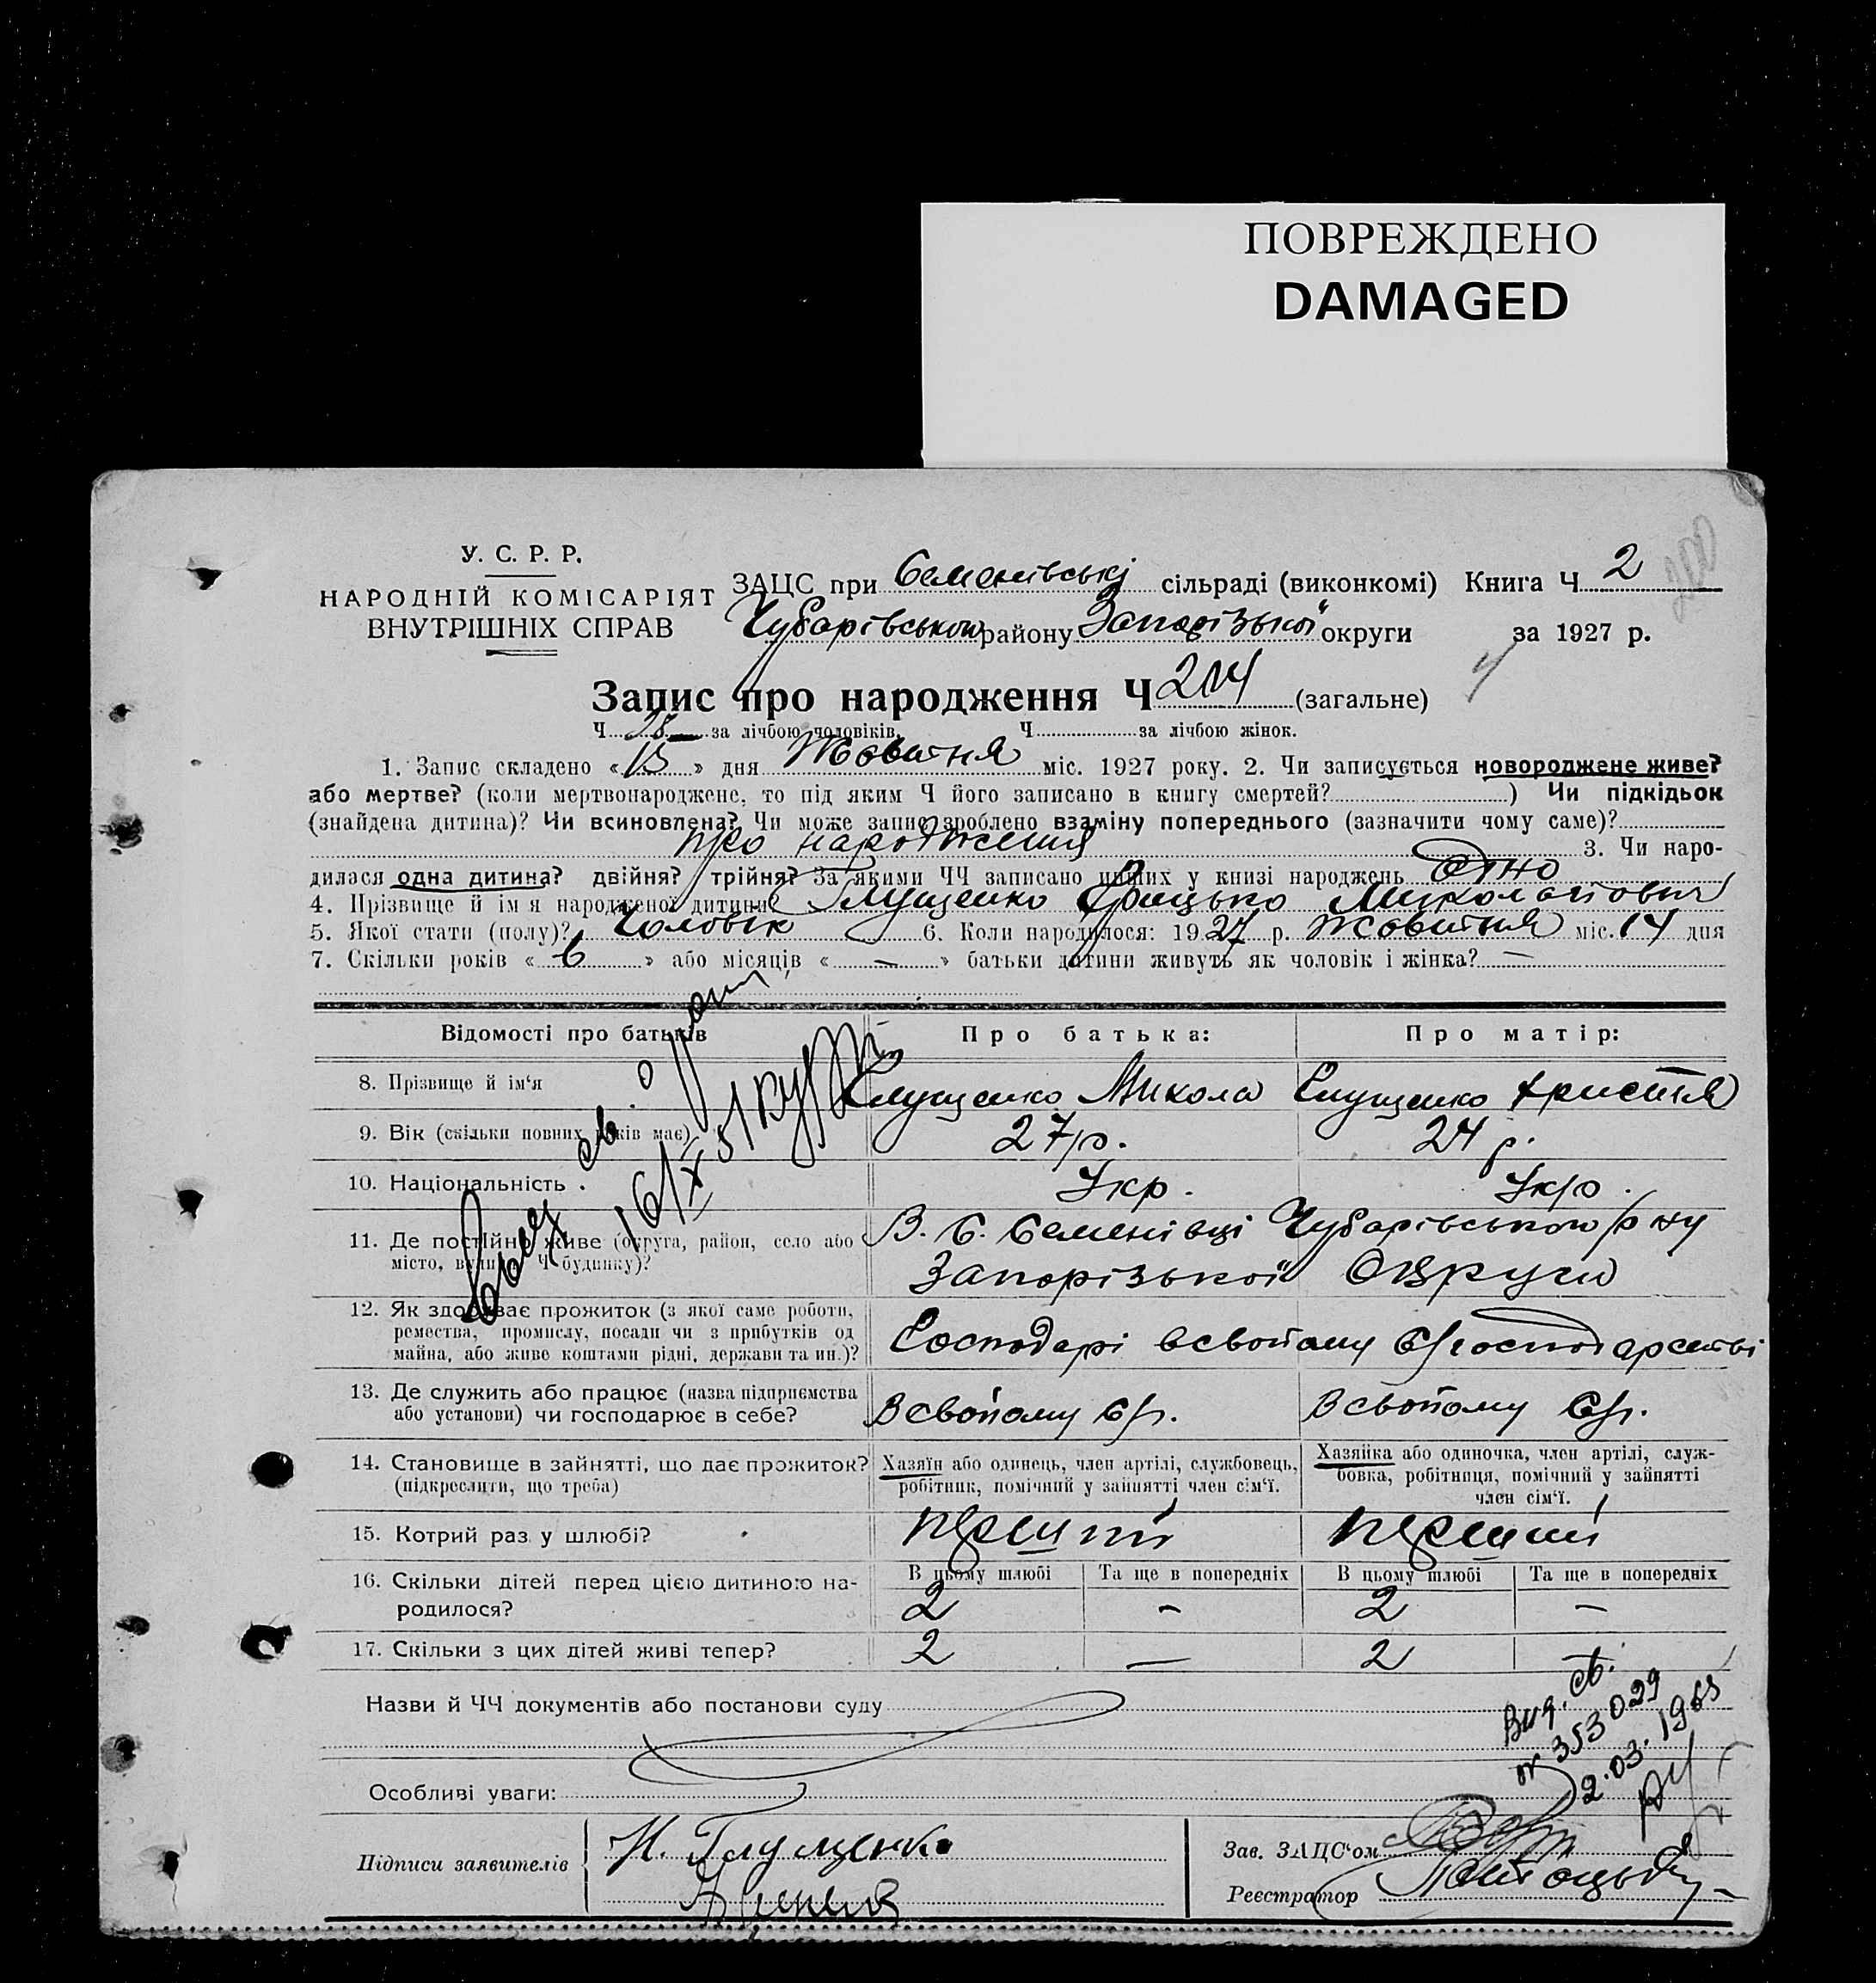 ПОВРЕЖДЕНО
DAMAGED
200
У. С. Р. Р.
НАРОДНІЙ КОМІСАРІЯТ
ВНУТРІШНІХ СПРАВ
ЗАЦС при Семенівські сільраді (виконкомі) Книга Ч 2
Чубарівського району Запорізької округи за 1927 р.
Запис про народження Ч 214 (загальне)
Ч за лічбою чоловіків, Ч за лічбою жінок.
1. Запис складено «15» дня Жовтня міс. 1927 року. 2. Чи записується новороджене живе?
або мертве? (коли мертвонароджене, то під яким Ч його записано в книгу смертей? ) Чи підкідьок
(знайдена дитина)? Чи всиновлена? Чи може запис зроблено взаміну попереднього (зазначити чому саме)?
про народження 3. Чи наро-
дилася одна дитина? двійня? трійня? За якими ЧЧ записано инших у книзі народжень одно
4. Прізвище й ім'я народженої дитини? Глущенко Грицько Миколайович
5. Якої стати (полу)? Чоловік 6. Коли народилося: 1927 р. Жовтня міс. 14 дня
7. Скільки років «6» або місяців «—» батьки дитини живуть як чоловік і жінка? —
Відомості про батьків Про батька: Про матір:
8. Прізвище й ім'я Глущенко Микола Глущенко Христя
9. Вік (скільки повних років має) 27 р. 24 р.
10. Національність Укр. Укр.
11. Де постійно живе (округа, район, село або В. С. Семенівці Чубарівського р-ну
місто, вулиця, Ч будинку)? Запорізької Округи
12. Як здобуває прожиток (з якої саме роботи,
ремества, промислу, посади чи з прибутків од Господарі всвойому С/господарстві
майна, або живе коштами рідні, держави та ин.)?
13. Де служить або працює (назва підприємства
або установи) чи господарює в себе? Всвойому С/г. Всвойому С/г.
14. Становище в зайнятті, що дає прожиток? Хазяїн або одинець, член артілі, службовець, Хазяйка або одиночка, член артілі, служ-
(підкреслити, що треба) робітник, помічний у зайнятті член сім'ї. бовка, робітниця, помічний у зайнятті
член сім'ї.
15. Котрий раз у шлюбі? перший перший
16. Скільки дітей перед цією дитиною на- В цьому шлюбі Та ще в попередніх В цьому шлюбі Та ще в попередніх
родилося? 2 — 2 —
17. Скільки з цих дітей живі тепер? 2 — 2 —
Назви й ЧЧ документів або постанови суду
Вид. св.
353029
2.03.1965
Особливі уваги:
Підписи заявителів Н. Глущенко
Зав. ЗАЦС'ом
Реєстратор